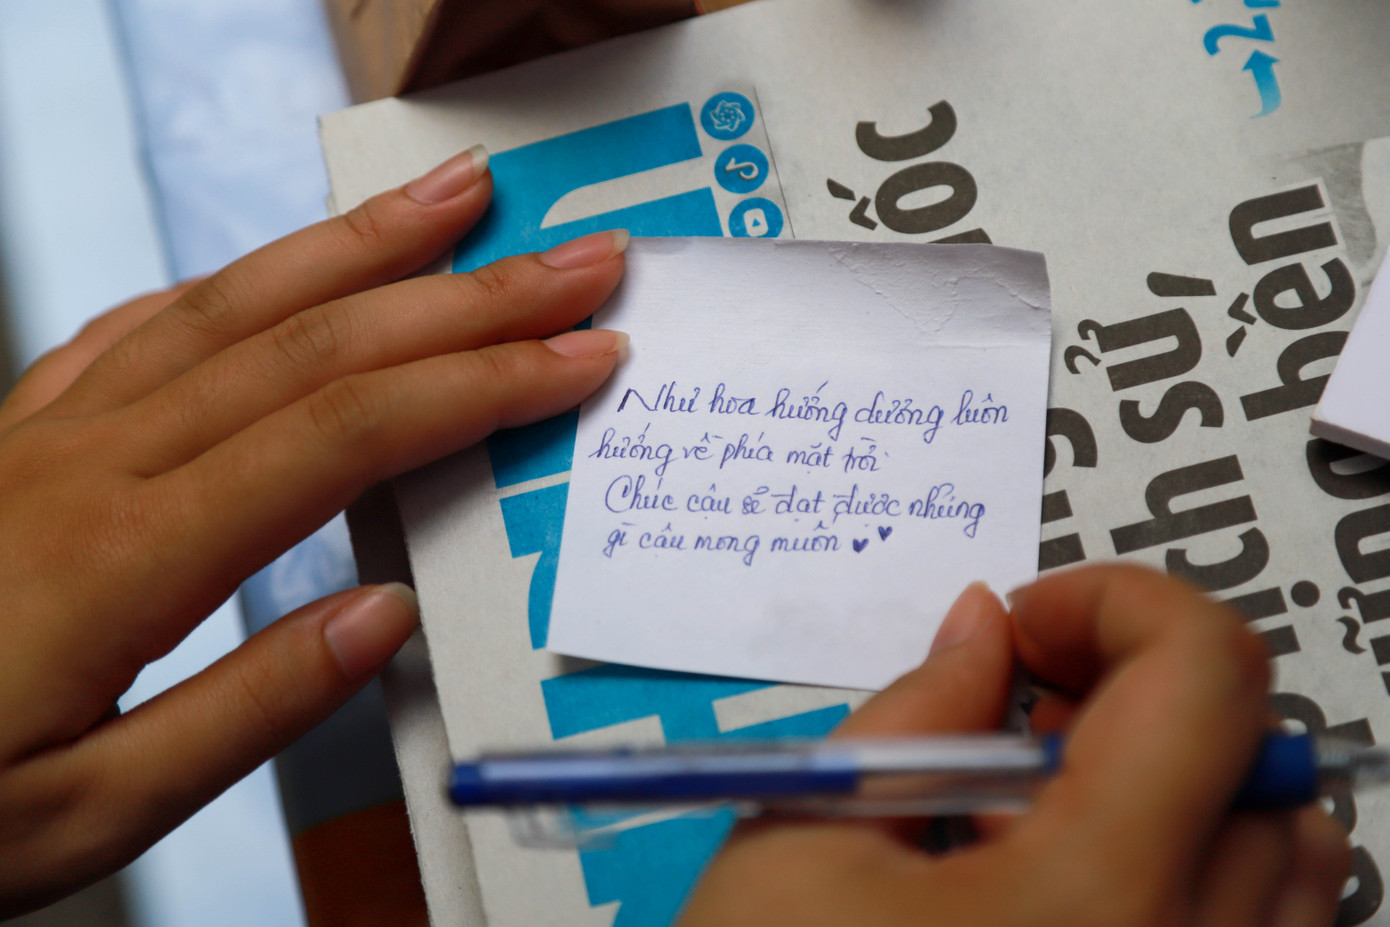 Như hoa hướng dương luôn
hướng về phía mặt trời
Chúc cậu sẽ đạt được những
gì cậu mong muốn
ốc
lịch sử
bền